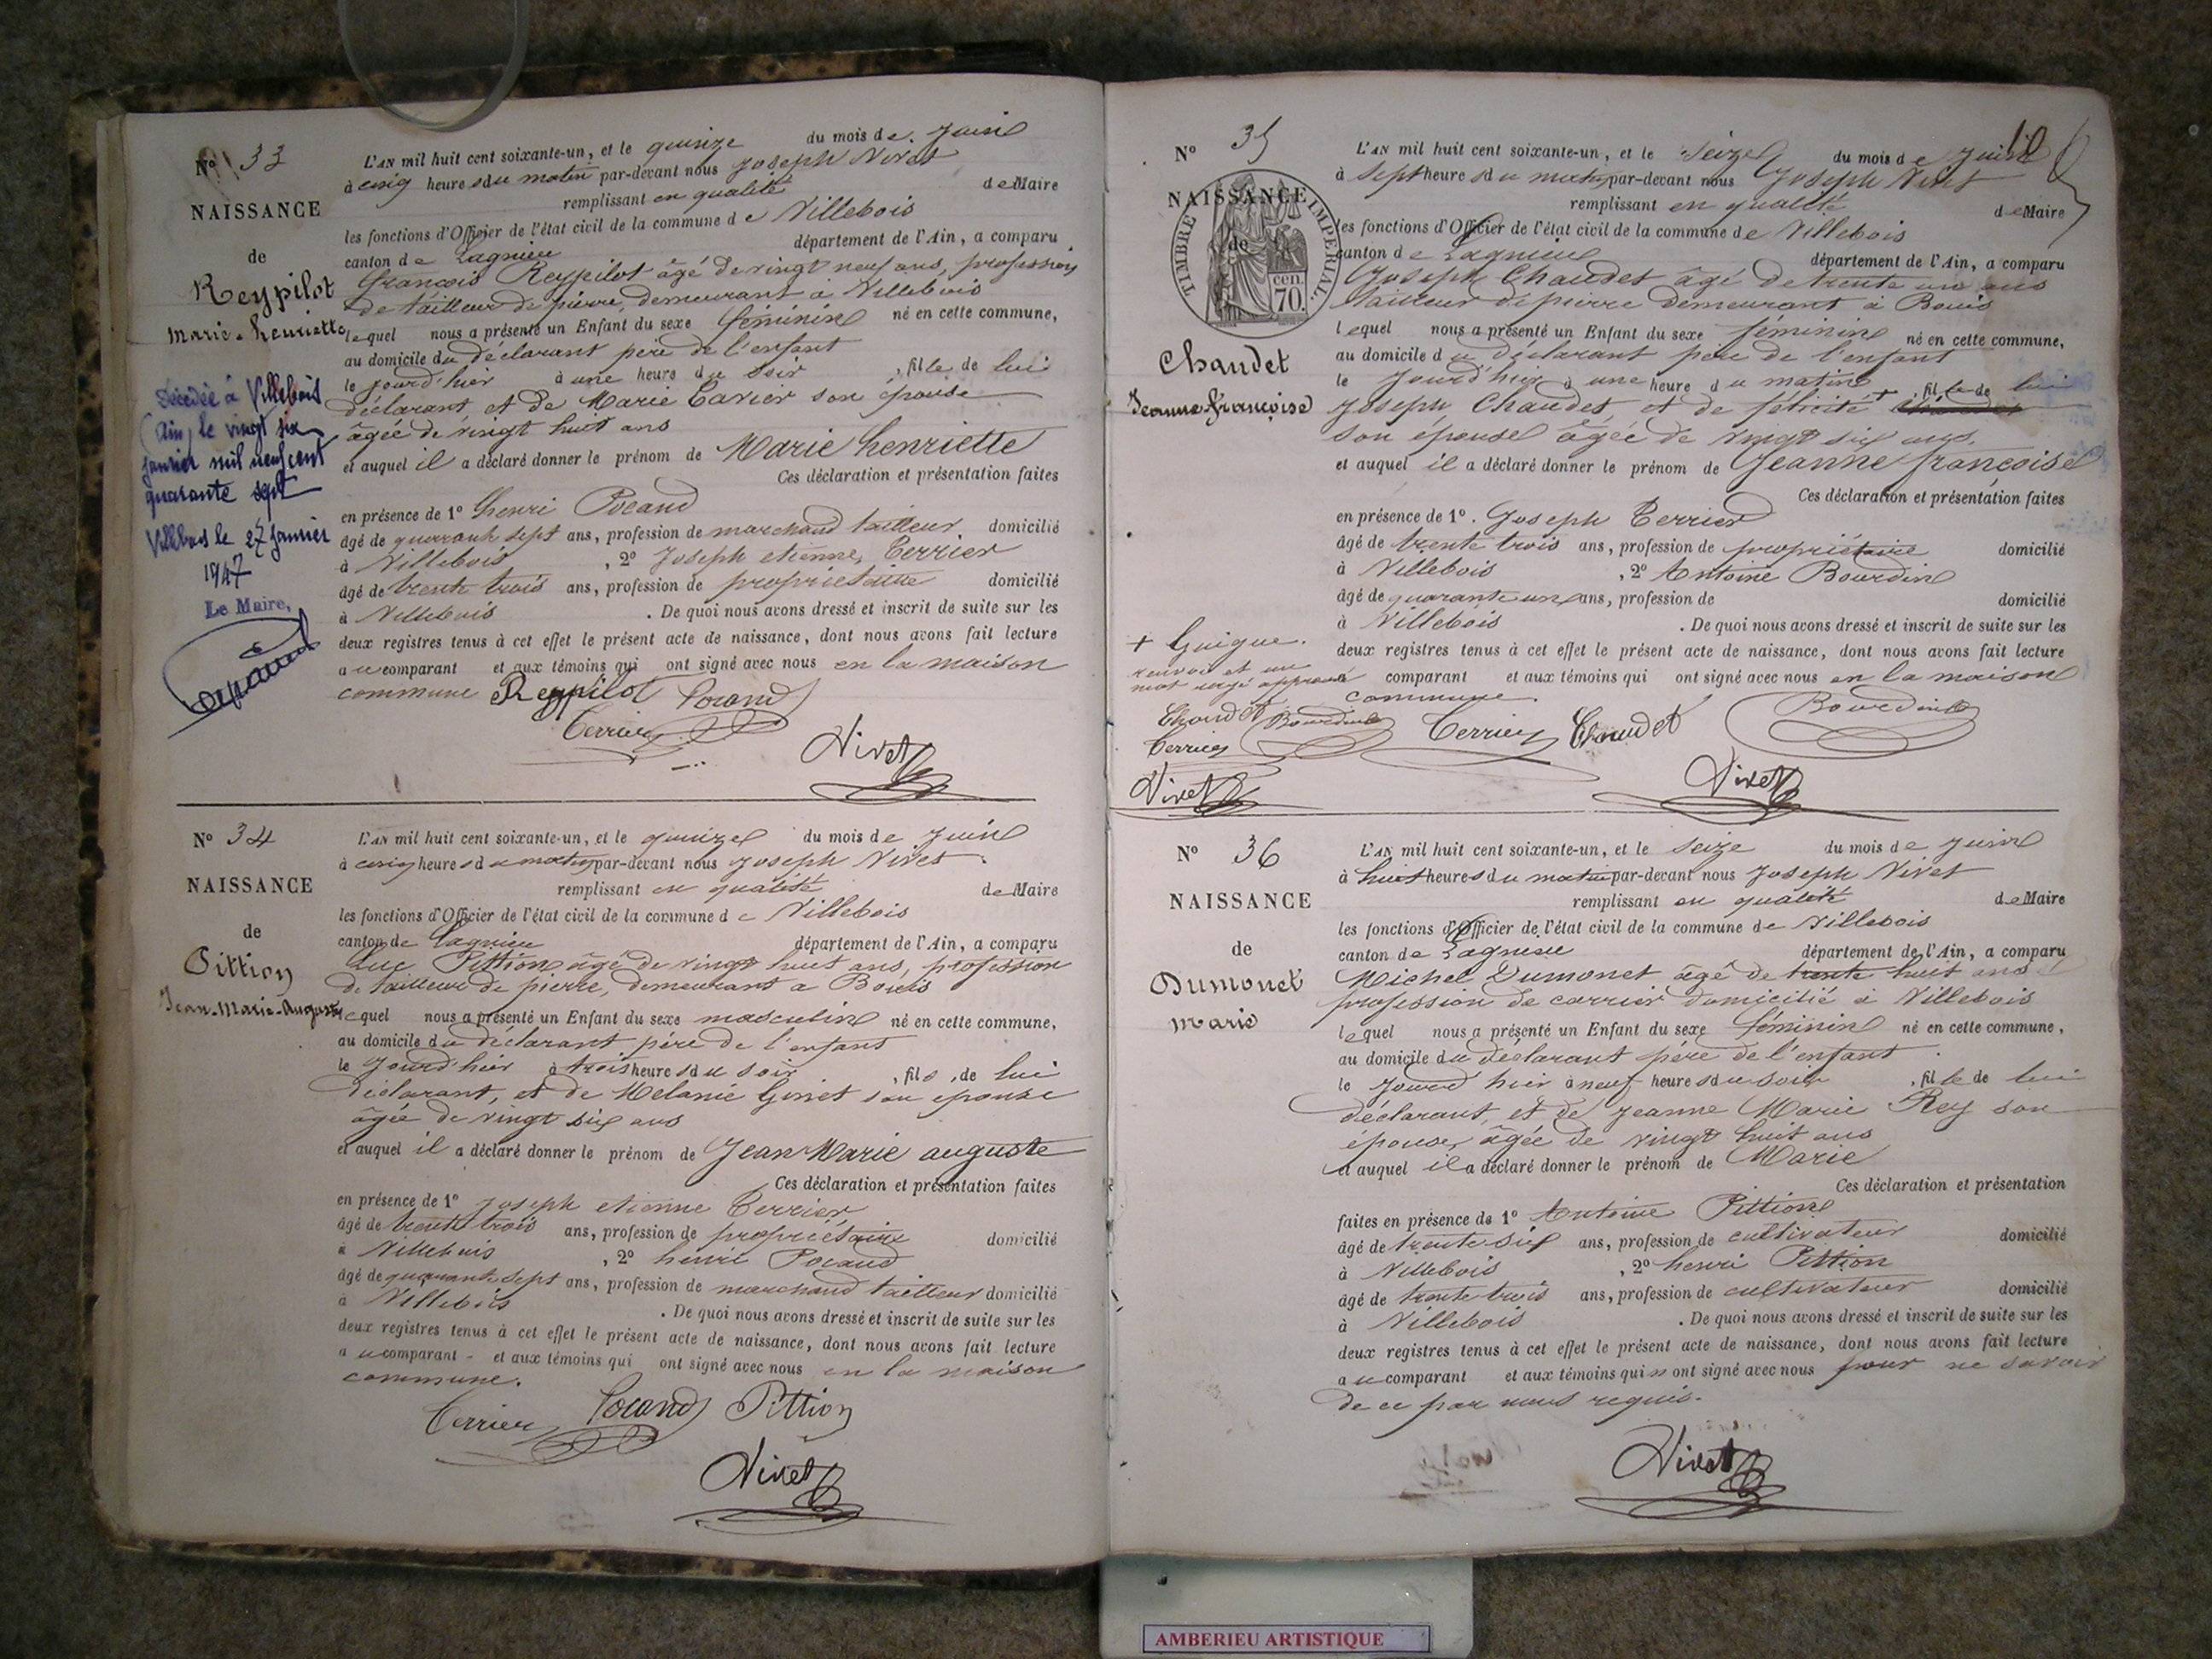 Nº 33
NAISSANCE
de
Reypilot
Marie-henriette
Décédée à Villebois
(Ain) le vingt six
janvier mil neuf cent
quarante sept
Villebois le 27 janvier
1947
Le Maire,
L'AN mil huit cent soixante-un, et le quinze du mois de Juin
à cinq heures du matin par-devant nous Joseph Nivet
remplissant en qualité de Maire
les fonctions d'Officier de l'état civil de la commune de Villebois
canton de Lagnieu département de l'Ain, a comparu
françois Reypilot âgé de vingt neuf ans, profession
de tailleur de pierre, demeurant à Villebois
lequel nous a présenté un Enfant du sexe féminin né en cette commune,
au domicile du déclarant père de l'enfant
le jourd'hier à une heure du soir, fille de lui
déclarant, et de Marie Cavier son épouse
âgée de vingt huit ans
et auquel il a déclaré donner le prénom de Marie henriette
Ces déclaration et présentation faites
en présence de 1º henri Pocand
âgé de quarante sept ans, profession de marchand tailleur domicilié
à Villebois, 2º Joseph etienne Terrier
âgé de trente trois ans, profession de propriétaire domicilié
à Villebois. De quoi nous avons dressé et inscrit de suite sur les
deux registres tenus à cet effet le présent acte de naissance, dont nous avons fait lecture
au comparant et aux témoins qui ont signé avec nous en la maison
commune Reypilot Pocand
Terrier
Nivet
Nº 34
NAISSANCE
de
Pittion
Jean-Marie-Auguste
L'AN mil huit cent soixante-un, et le quinze du mois de Juin
à cinq heures du matin par-devant nous Joseph Nivet
remplissant en qualité de Maire
les fonctions d'Officier de l'état civil de la commune de Villebois
canton de Lagnieu département de l'Ain, a comparu
Luc Pittion âgé de vingt huit ans, profession
de tailleur de pierre, demeurant a Bouis
lequel nous a présenté un Enfant du sexe masculin né en cette commune,
au domicile du déclarant père de l'enfant
le jourd'hier à trois heures du soir, fils, de lui
déclarant, et de Melanie Ginet son épouse
âgée de vingt six ans
et auquel il a déclaré donner le prénom de Jean Marie auguste
Ces déclaration et présentation faites
en présence de 1º Joseph etienne Terrier
âgé de trente trois ans, profession de propriétaire domicilié
à Villebois, 2º henri Pocand
âgé de quarante sept ans, profession de marchand tailleur domicilié
à Villebois. De quoi nous avons dressé et inscrit de suite sur les
deux registres tenus à cet effet le présent acte de naissance, dont nous avons fait lecture
au comparant - et aux témoins qui ont signé avec nous en la maison
commune.
Terrier Pocand Pittion
Nivet
Nº 35
NAISSANCE
de
TIMBRE IMPÉRIAL.
70 cen.
Chaudet
Jeanne françoise
L'AN mil huit cent soixante-un, et le Seize du mois de Juin
à Sept heures du matin par-devant nous Joseph Nivet
remplissant en qualité de Maire
les fonctions d'Officier de l'état civil de la commune de Villebois
canton de Lagnieu département de l'Ain, a comparu
Joseph Chaudet âgé de trente un ans
tailleur de pierre demeurant à Bouis
lequel nous a présenté un Enfant du sexe féminin né en cette commune,
au domicile du déclarant père de l'enfant
le jourd'hier à une heure du matin, fille de lui
Joseph Chaudet, et de félicité +
son épouse âgée de vingt six ans,
et auquel il a déclaré donner le prénom de Jeanne françoise
Ces déclaration et présentation faites
en présence de 1º. Joseph Terrier
âgé de trente trois ans, profession de propriétaire domicilié
à Villebois, 2º Antoine Bourdin
âgé de quarante un ans, profession de domicilié
à Villebois. De quoi nous avons dressé et inscrit de suite sur les
deux registres tenus à cet effet le présent acte de naissance, dont nous avons fait lecture
comparant et aux témoins qui ont signé avec nous en la maison
commune.
+ Guigue.
renvoi et un
mot rayé approuvé
Chaudet Bourdin
Terrier
Nivet
Terrier Chaudet Bourdin
Nivet
Nº 36
NAISSANCE
de
Dumonet
marie
L'AN mil huit cent soixante-un, et le seize du mois de Juin
à huit heures du matin par-devant nous Joseph Nivet
remplissant en qualité de Maire
les fonctions d'Officier de l'état civil de la commune de Villebois
canton de Lagnieu département de l'Ain, a comparu
Michel Dumonet âgé de trente huit ans
profession de carrier domicilié à Villebois
lequel nous a présenté un Enfant du sexe féminin né en cette commune,
au domicile du déclarant père de l'enfant.
le jourd'hier à neuf heures du soir, fille de lui
déclarant, et de Jeanne Marie Rey son
épouse, âgée de vingt huit ans
et auquel il a déclaré donner le prénom de Marie
Ces déclaration et présentation
faites en présence de 1º Antoine Pittion
âgé de trente-six ans, profession de cultivateur domicilié
à Villebois, 2º henri Pittion
âgé de trente trois ans, profession de cultivateur domicilié
à Villebois. De quoi nous avons dressé et inscrit de suite sur les
deux registres tenus à cet effet le présent acte de naissance, dont nous avons fait lecture
au comparant et aux témoins qui n ont signé avec nous pour ne savoir
de ce par nous requis.
Nivet
AMBERIEU ARTISTIQUE